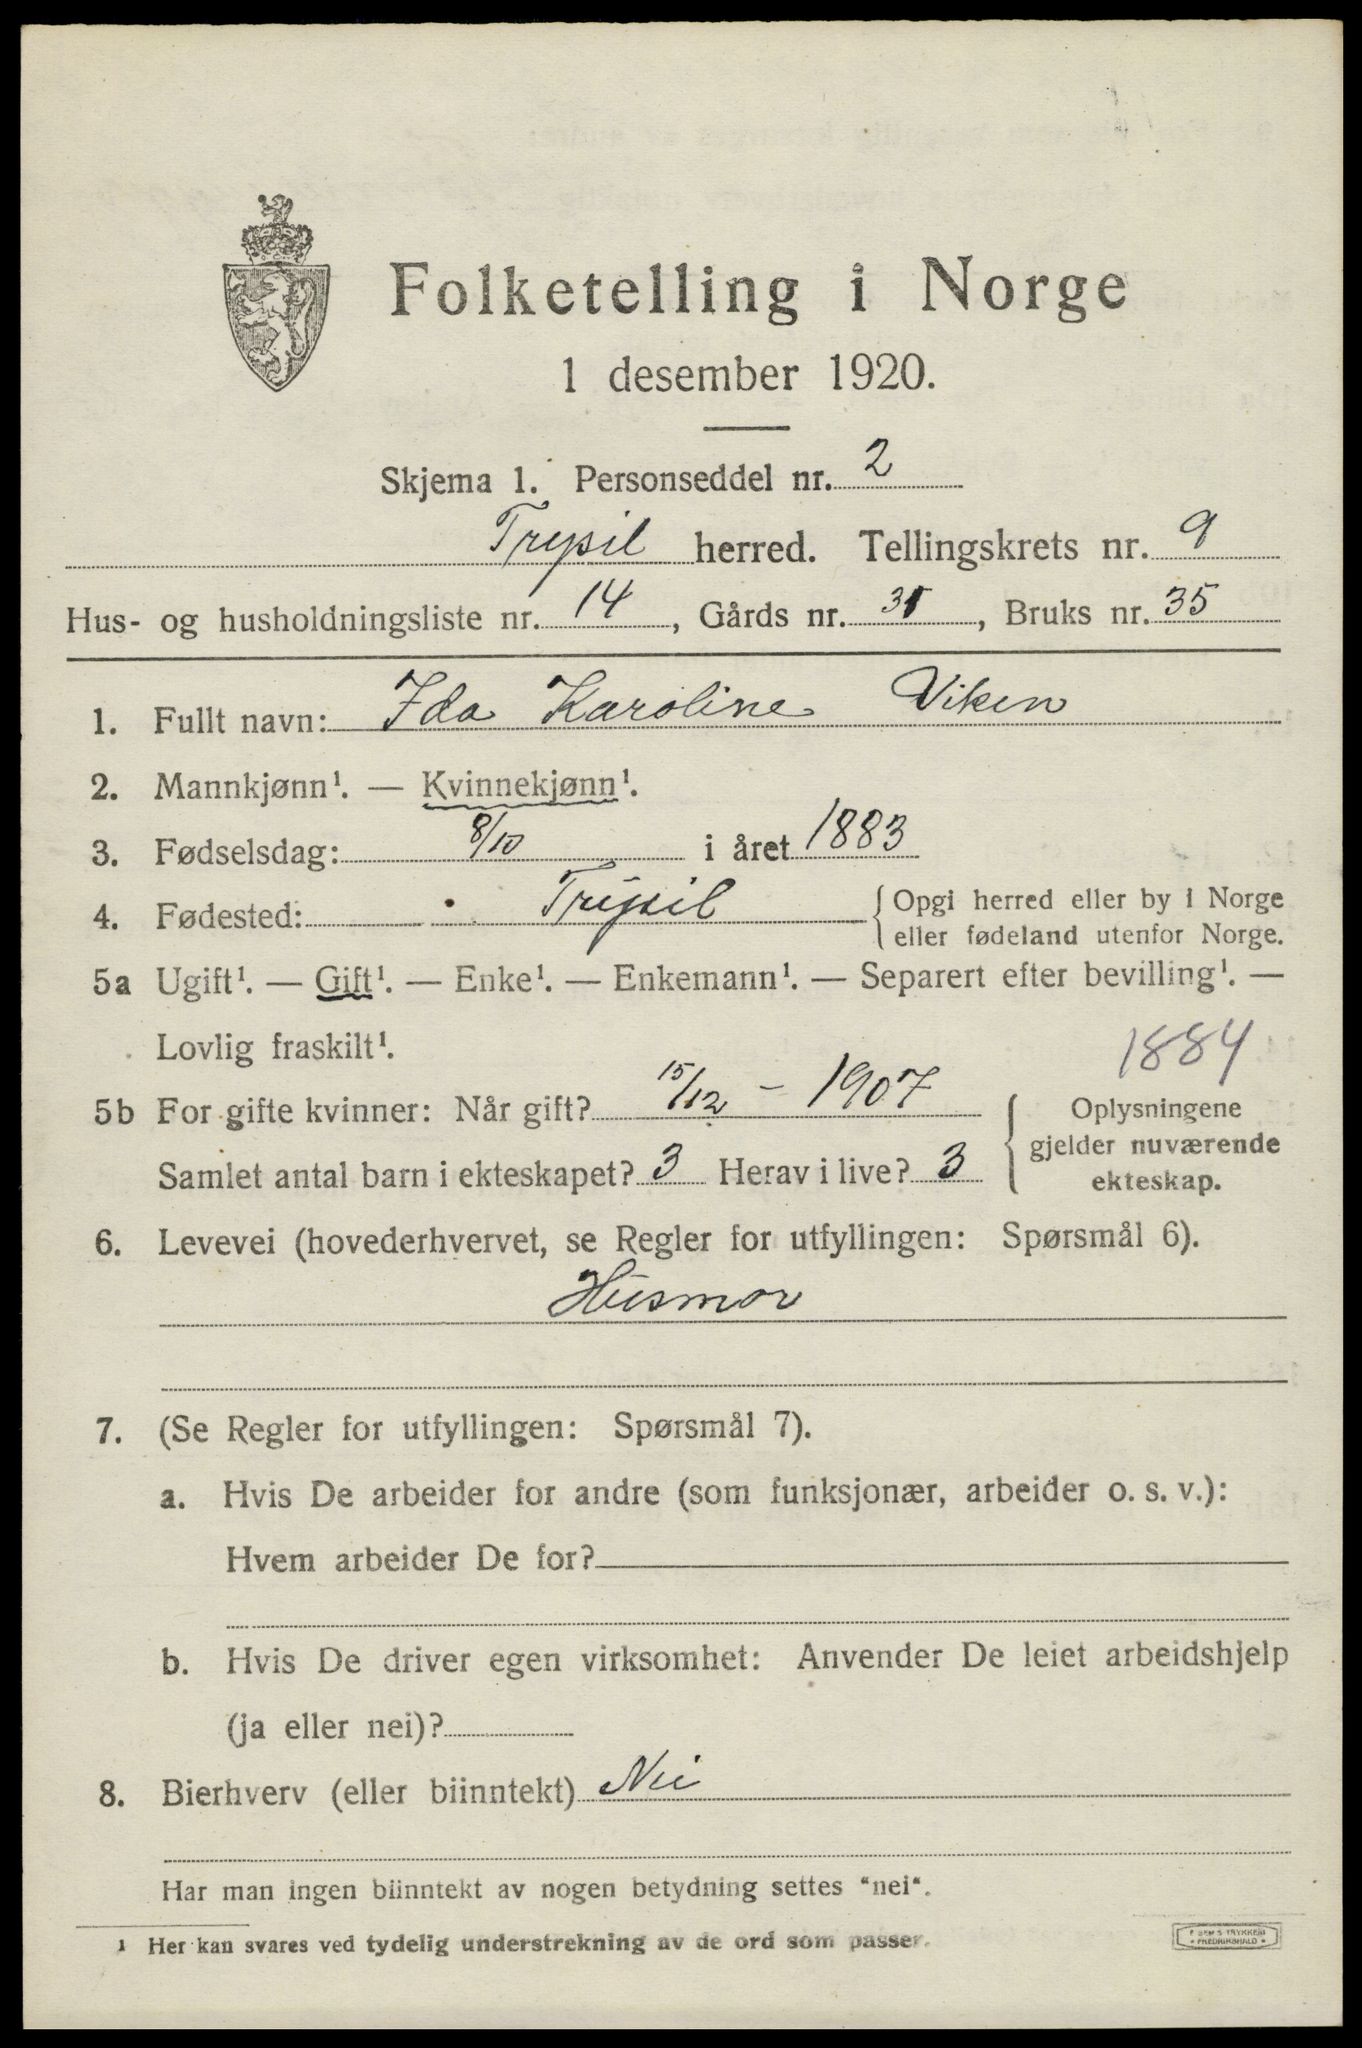 Folketelling i Norge
1 desember 1920.
Skjema 1. Personseddel nr. 2
Trysil herred. Tellingskrets nr. 9
Hus- og husholdningsliste nr. 14, Gårds nr. 31, Bruks nr. 35
1. Fullt navn: Ida Karoline Viken
2. Mannkjønn¹. — Kvinnekjønn¹.
3. Fødselsdag: 8/10 i året 1883
4. Fødested: Trysil {Opgi herred eller by i Norge
eller fødeland utenfor Norge.
5a Ugift¹. — Gift¹. — Enke¹. — Enkemann¹. — Separert efter bevilling¹. —
Lovlig fraskilt¹.
1884
5b For gifte kvinner: Når gift? 15/12 - 1907
Samlet antal barn i ekteskapet? 3 Herav i live? 3
{Oplysningene
gjelder nuværende
ekteskap.
6. Levevei (hovederhvervet, se Regler for utfyllingen: Spørsmål 6).
Husmor
7. (Se Regler for utfyllingen: Spørsmål 7).
a. Hvis De arbeider for andre (som funksjonær, arbeider o. s. v.):
Hvem arbeider De for?
b. Hvis De driver egen virksomhet: Anvender De leiet arbeidshjelp
(ja eller nei)?
8. Bierhverv (eller biinntekt) Nei
Har man ingen biinntekt av nogen betydning settes "nei".
¹ Her kan svares ved tydelig understrekning av de ord som passer.
FREDRIKSHALD